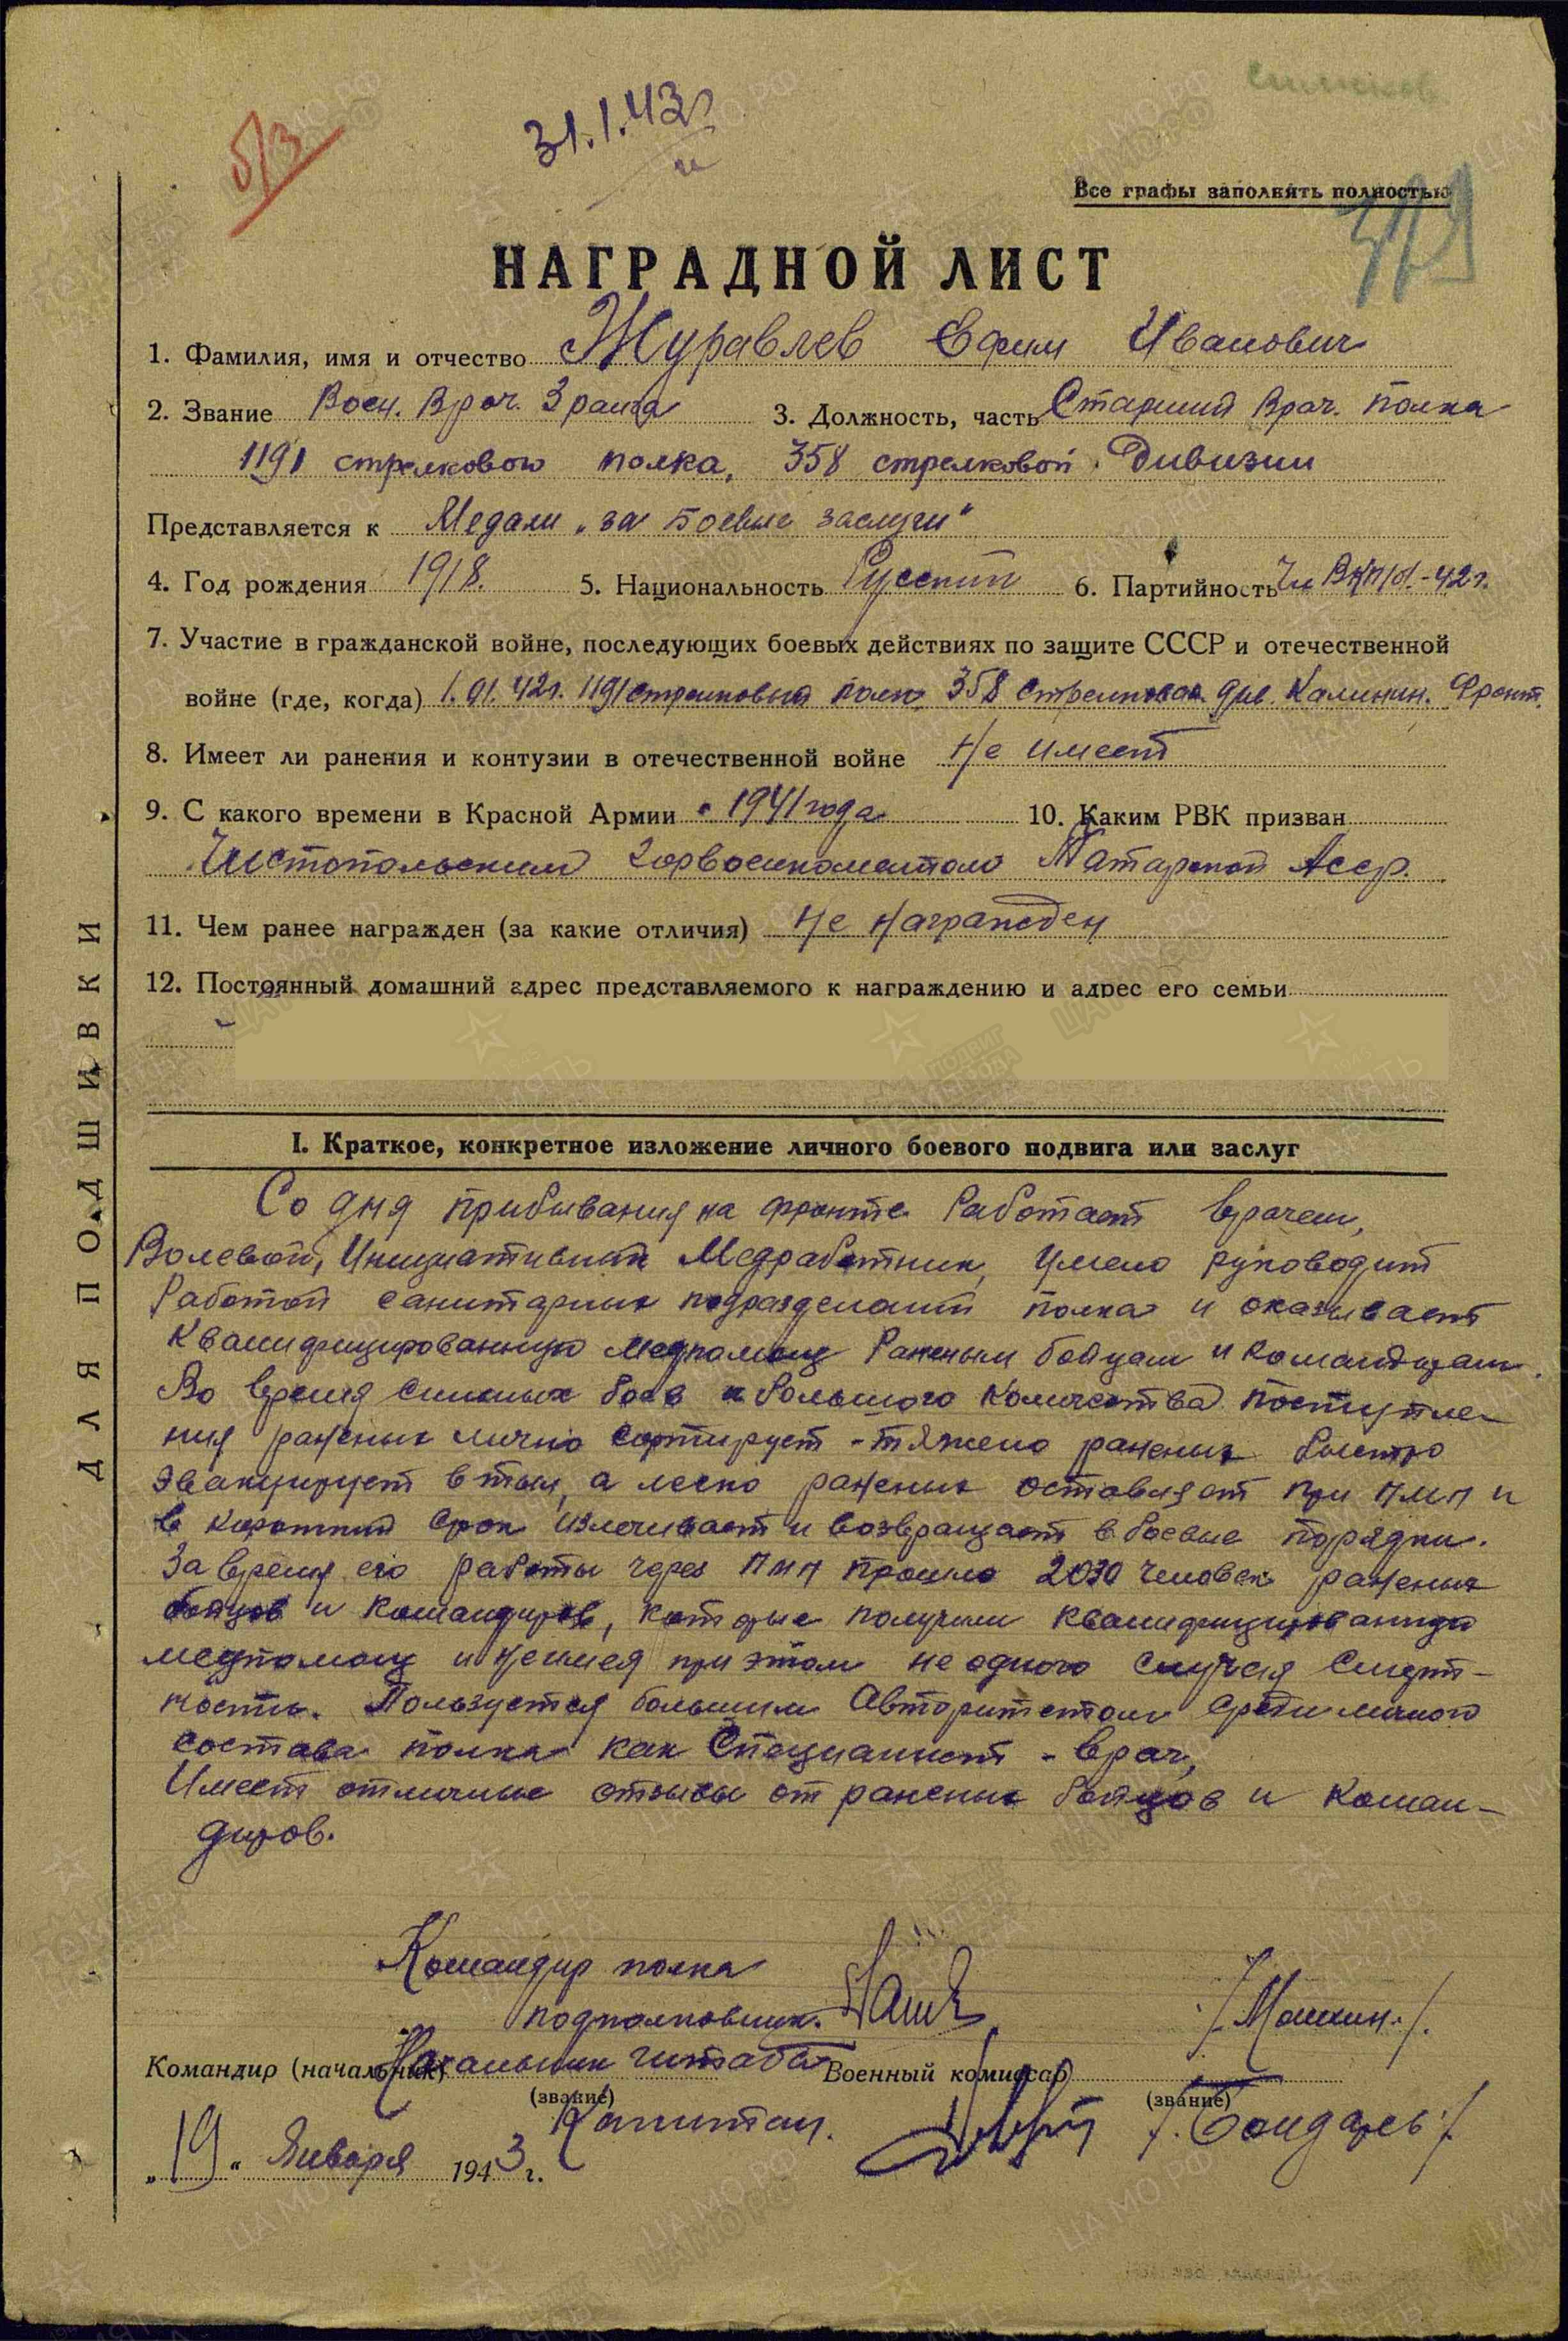 б/з
31.1.43
Все графы заполнять полностью
НАГРАДНОЙ ЛИСТ
1. Фамилия, имя и отчество Журавлев Ефим Иванович
2. Звание Воен. Врач. 3 ранга 3. Должность, часть Старший Врач. полка
1191 стрелкового полка, 358 стрелковой Дивизии
Представляется к Медали „за Боевые заслуги"
4. Год рождения 1918. 5. Национальность Русский 6. Партийность Чл. ВКП/б/.-42г.
7. Участие в гражданской войне, последующих боевых действиях по защите СССР и отечественной
войне (где, когда) 1.01.42г. 1191 стрелковый полк 358 стрелковая див. Калинин. Фронт.
8. Имеет ли ранения и контузии в отечественной войне Не имеет
9. С какого времени в Красной Армии с 1941 года 10. Каким РВК призван
Чистопольским Горвоенкоматом Татарской Асср.
11. Чем ранее награжден (за какие отличия) Не Награжден
12. Постоянный домашний адрес представляемого к награждению и адрес его семьи
ДЛЯ ПОДШИВКИ
I. Краткое, конкретное изложение личного боевого подвига или заслуг
Со дня прибывания на фронте Работает врачем,
Волевой, Инициативный Медработник, Умело руководит
Работой санитарных подразделений полка и оказывает
Квалифицированную медпомощ Раненым бойцам и командирам.
Во время сильных боев и большого количества поступле-
ния раненых лично сортирует - тяжело раненых быстро
эвакуирует в тыл, а легко раненых оставляет при ПМП и
в короткий срок излечивает и возвращает в боевые порядки.
За время его работы через ПМП прошло 2030 человек раненых
бойцов и командиров, которые получили квалифицированную
медпомощ и неимея при этом не одного случая смерт-
ности. Пользуется большим Авторитетом среди личного
состава полка как Специалист - врач,
Имеет отличные отзывы от раненых бойцов и коман-
диров.
Командир полка
подполковник. /Машин./.
Командир (начальник) Начальник штаба Военный комиссар
(звание) (звание)
Капитан. /.Бондарь./
„19" Января 1943 г.